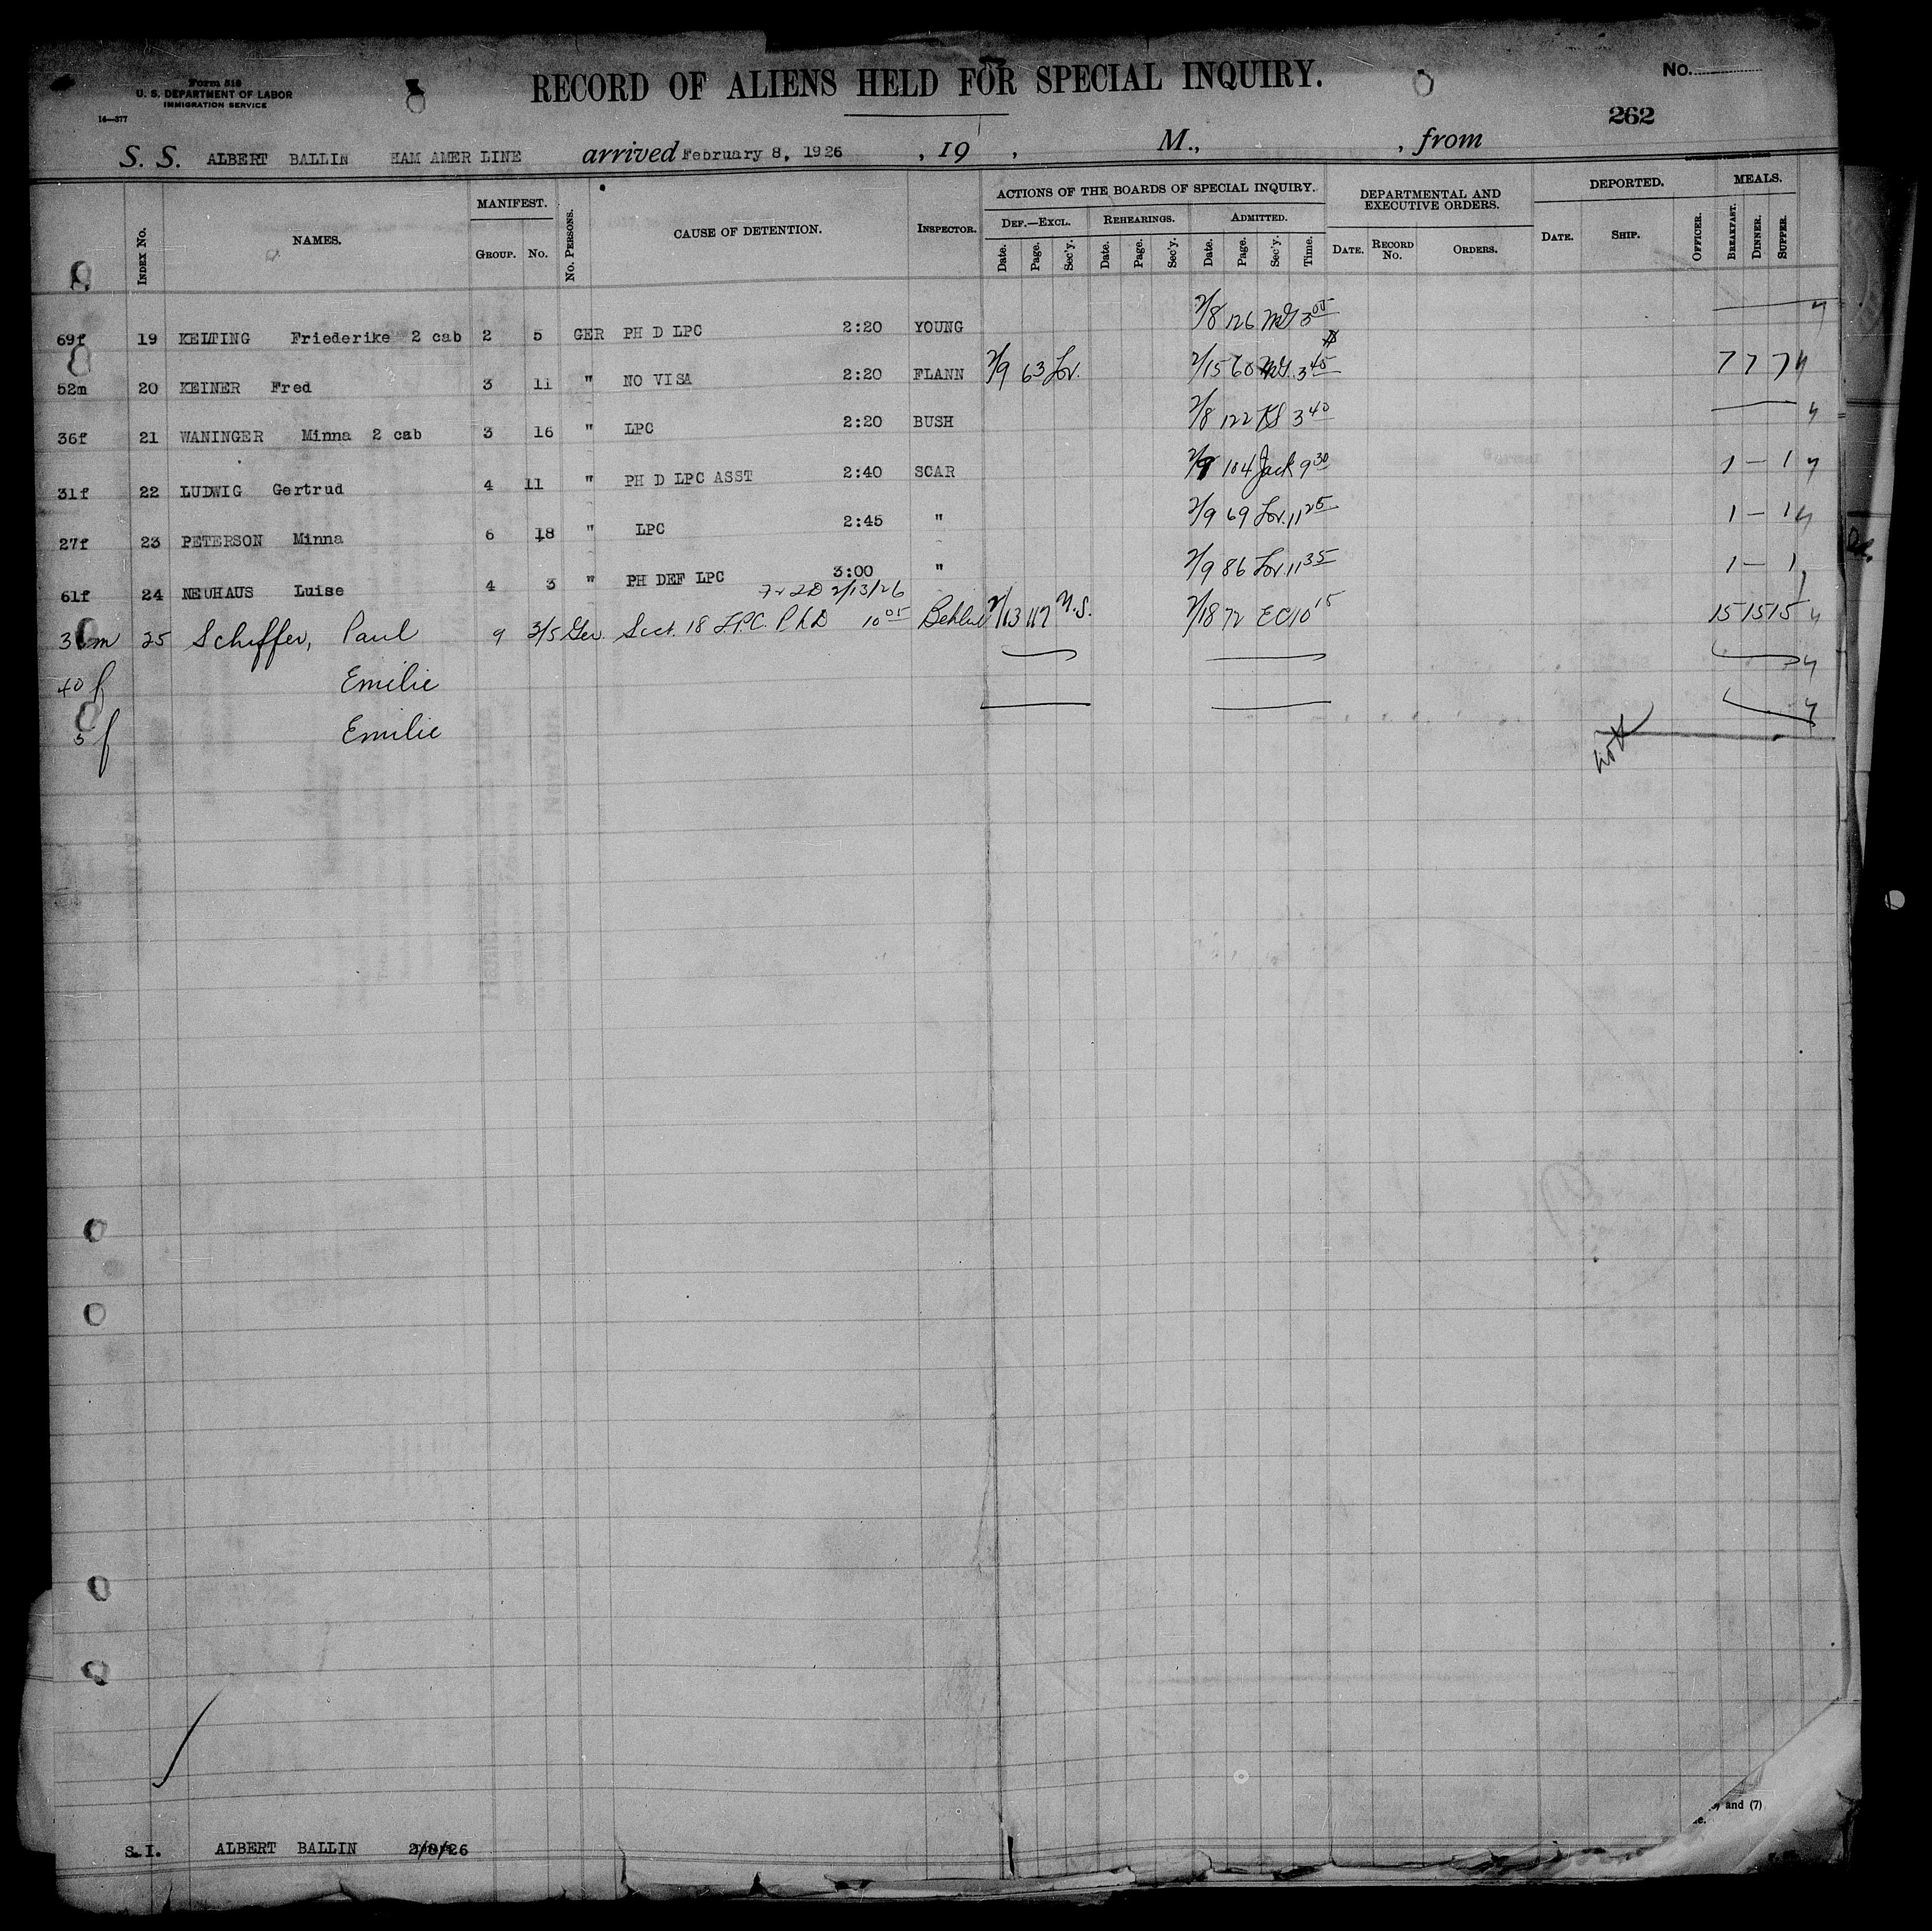 Form 518
U. S. DEPARTMENT OF LABOR
IMMIGRATION SERVICE
14—377
RECORD OF ALIENS HELD FOR SPECIAL INQUIRY.
No.
262
S. S. ALBERT BALLIN HAM AMER LINE arrived February 8, 1926 , 19 , M., , from
INDEX No. NAMES. MANIFEST. GROUP. No. No. PERSONS. CAUSE OF DETENTION. INSPECTOR. ACTIONS OF THE BOARDS OF SPECIAL INQUIRY. DEF.—EXCL. Date. Page. Sec'y. REHEARINGS. Date. Page. Sec'y. ADMITTED. Date. Page. Sec'y. Time. DEPARTMENTAL AND EXECUTIVE ORDERS. DATE. RECORD No. ORDERS. DEPORTED. DATE. SHIP. OFFICER. MEALS. BREAKFAST. DINNER. SUPPER.
69f 19 KELTING Friederike 2 cab 2 5 GER PH D LPC 2:20 YOUNG 2/8 126 3 00
52m 20 KEINER Fred 3 11 " NO VISA 2:20 FLANN 2/9 63 Lov. 2/15 60 3 45 7 7 7
36f 21 WANINGER Minna 2 cab 3 16 " LPC 2:20 BUSH 2/8 122 KS 3 40
31f 22 LUDWIG Gertrud 4 11 " PH D LPC ASST 2:40 SCAR 2/9 104 Jack 9 30 1 — 1
27f 23 PETERSON Minna 6 18 " LPC 2:45 " 2/9 69 Lov. 11 25 1 — 1
61f 24 NEUHAUS Luise 4 3 " PH DEF LPC 3:00 " 2/9 86 Lov. 11 35 1 — 1
2/13/26
25 Schiffer, Paul 9 3/5 Ger. Sect. 18 LPC. Ph D 10 05 2/13 117 2/18 72 EC 10 15 15 15 15
40 f Emilie
5 f Emilie
S.I. ALBERT BALLIN 2/8/26
and (7)